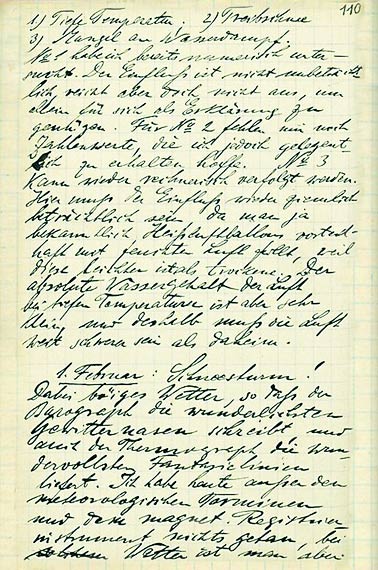 110
1) Tiefe Temperatur. 2) Treibschnee
3) Mangel an Wasserdampf.
No 1 habe ich bereits numerisch unter-
sucht. Der Einfluss ist nicht unbeträcht-
lich, reicht aber doch nicht aus, um
allein für sich als Erklärung zu
genügen. Für No 2 fehlen mir noch
Zahlenwerte, die ich jedoch gelegent-
lich zu erhalten hoffe. No 3
kann wieder rechnerisch verfolgt werden.
Hier muss der Einfluss wieder ziemlich
beträchtlich sein, da man ja
bekanntlich Heissluftballons vorteil-
haft mit feuchter Luft füllt, weil
diese leichter ist als trockene. Der
absolute Wassergehalt der Luft
bei tiefen Temperaturen ist aber sehr
klein, und deshalb muss die Luft
weit schwerer sein als daheim.
1. Februar: Schneesturm!
Dabei böiges Wetter, so dass der
Barograph die wunderlichsten
Gewitternasen schreibt und
auch der Thermograph die wun-
dervollsten Fantasielinien
liefert. Ich habe heute ausser den
meteorologischen Terminen
und dem magnet. Registrier-
instrument nichts getan, bei
Wetter ist man aber